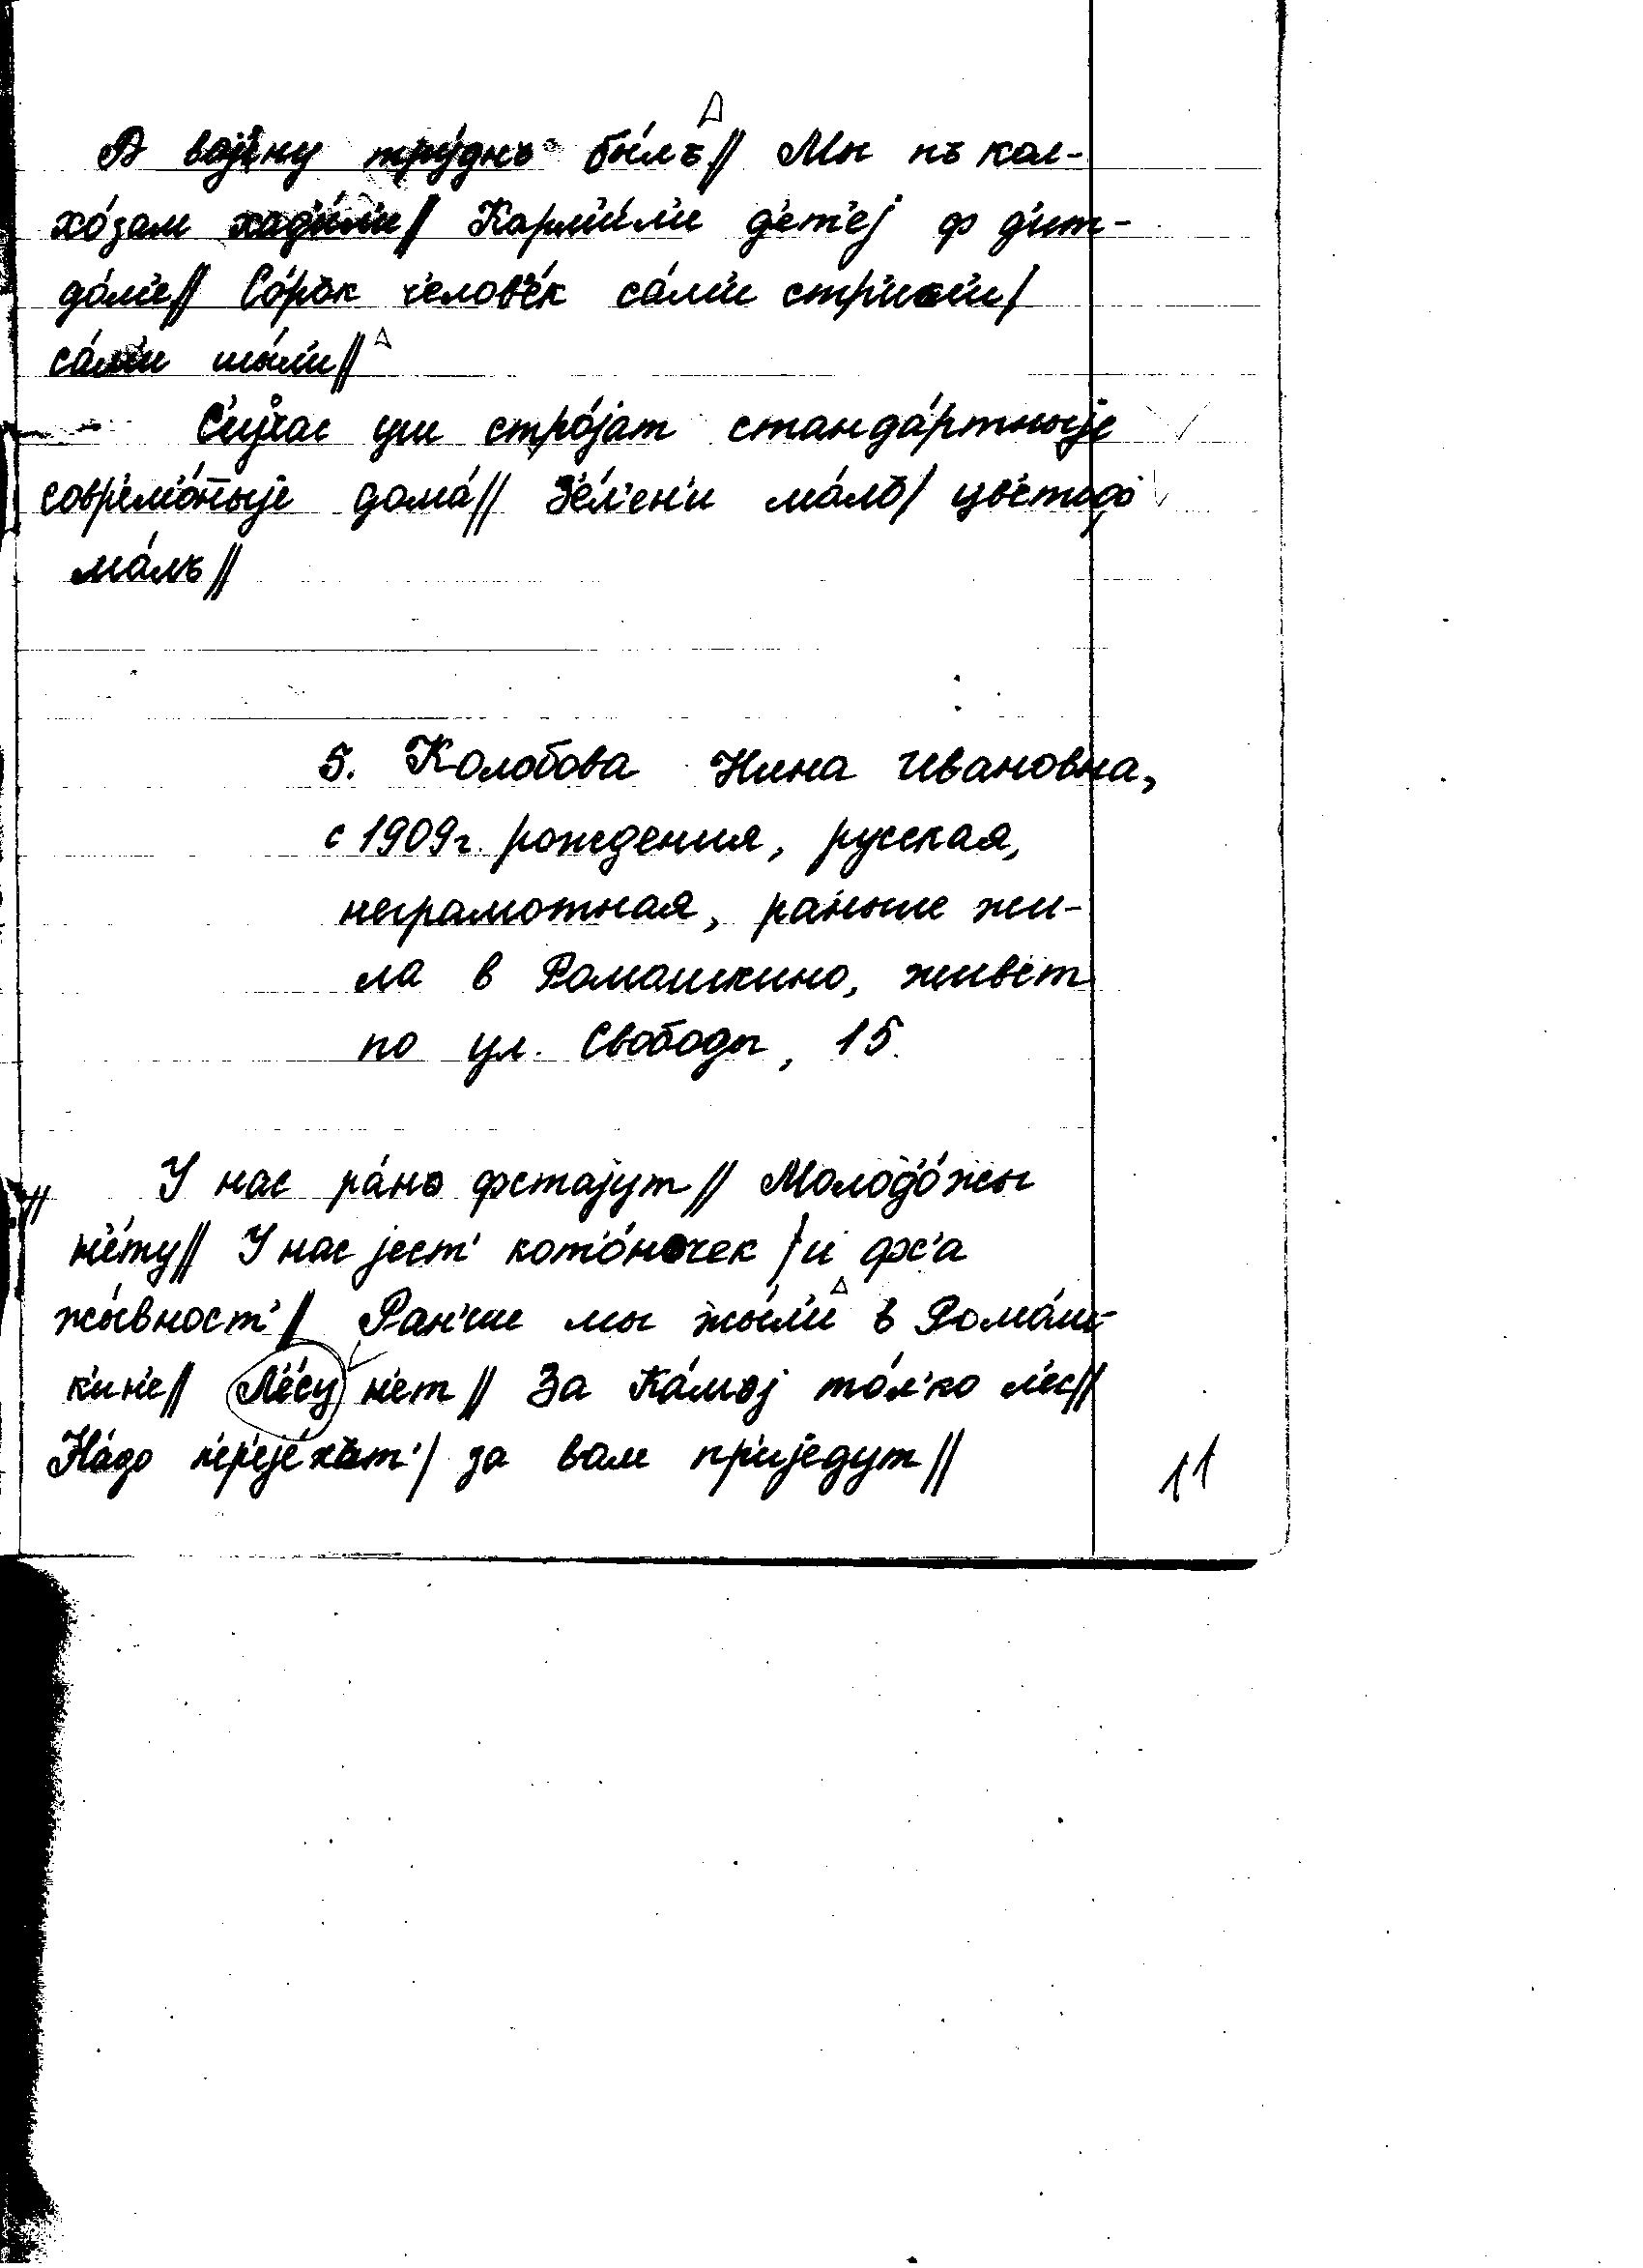 А војну́ тру́днъ бы́лъ // Мы пъ кал-
хо́зам хад'и́л'и // Карм'и́л'и д'ет'еј ф д'ит-
до́м'е // Со́рък ч'елов'е́к са́м'и стр'игл'и /
са́м'и мы́л'и //
С'ич'ас уш стро́јат станда́ртныје
совр'ем'о́ныје дома́ // З'е́л'ен'и ма́лъ / цв'ето́ф
ма́лъ //
5. Колобова Нина Ивановна,
с 1909г. рождения, русская,
неграмотная, раньше жи-
ла в Ромашкино, живет
по ул. Свободы, 15.
У нас ра́но фстају́т // Молод'о́жы
н'е́ту // У нас јест' кот'о́ночек / и фс'а
жы́вност' / Ран'ше мы жы́л'и в Рома́ш-
к'ин'е // Л'е́су н'ет // За Ка́мој то́л'ко л'ес //
На́до п'ер'еје́хат' / за вам пр'иједут //
11